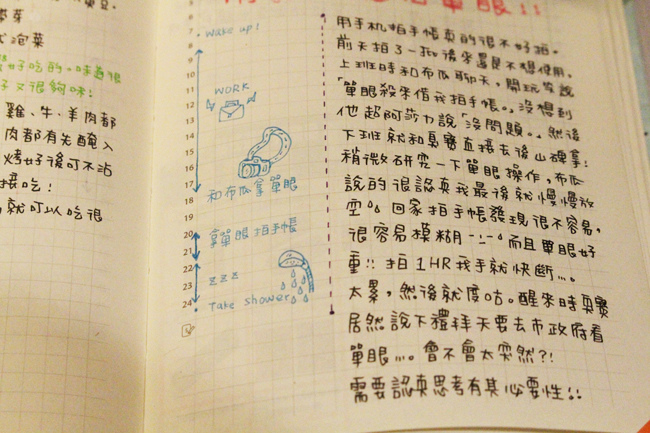 芽
泡菜
好吃的,味道很
又很夠味!
雞、牛、羊肉都
肉都有先醃入
烤好後可不沾
接吃!
就可以吃很
單眼!!
6
7 wake up!
8
9
10
11 WORK
12
13
14
15
16
17
18 和布瓜拿單眼
19
20 拿單眼拍手帳
21
22
23 zzz
24 Take shower
用手机拍手帳真的很不好拍。
前天拍了一批後來還是不想使用,
上班時和布瓜聊天,開玩笑說
「單眼殺來借我拍手帳。」沒想到
他超阿莎力說「沒問題。」然後
下班就和真賽直接去後山碑拿!
稍微研究一下單眼操作,布瓜
說的很認真我最後就慢慢放
空。。回家拍手帳發現很不容易,
很容易模糊 而且單眼好
重!! 拍1HR我手就快斷...。
太累,然後就度咕。醒來時真賽
居然說下禮拜天要去市政府看
單眼...。會不會太突然?!
需要認真思考有其必要性!!